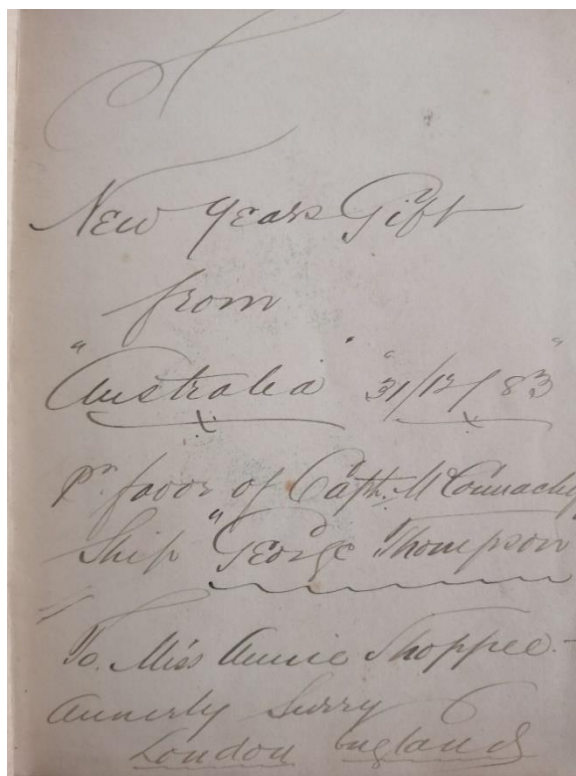 New Years Gift
from
"Australia" "31/12/83"
Pr. favor of Captn. McConnachy
Ship "George Thompson"
To. Miss Annie Shoppee.-
Annerly Surry
London England